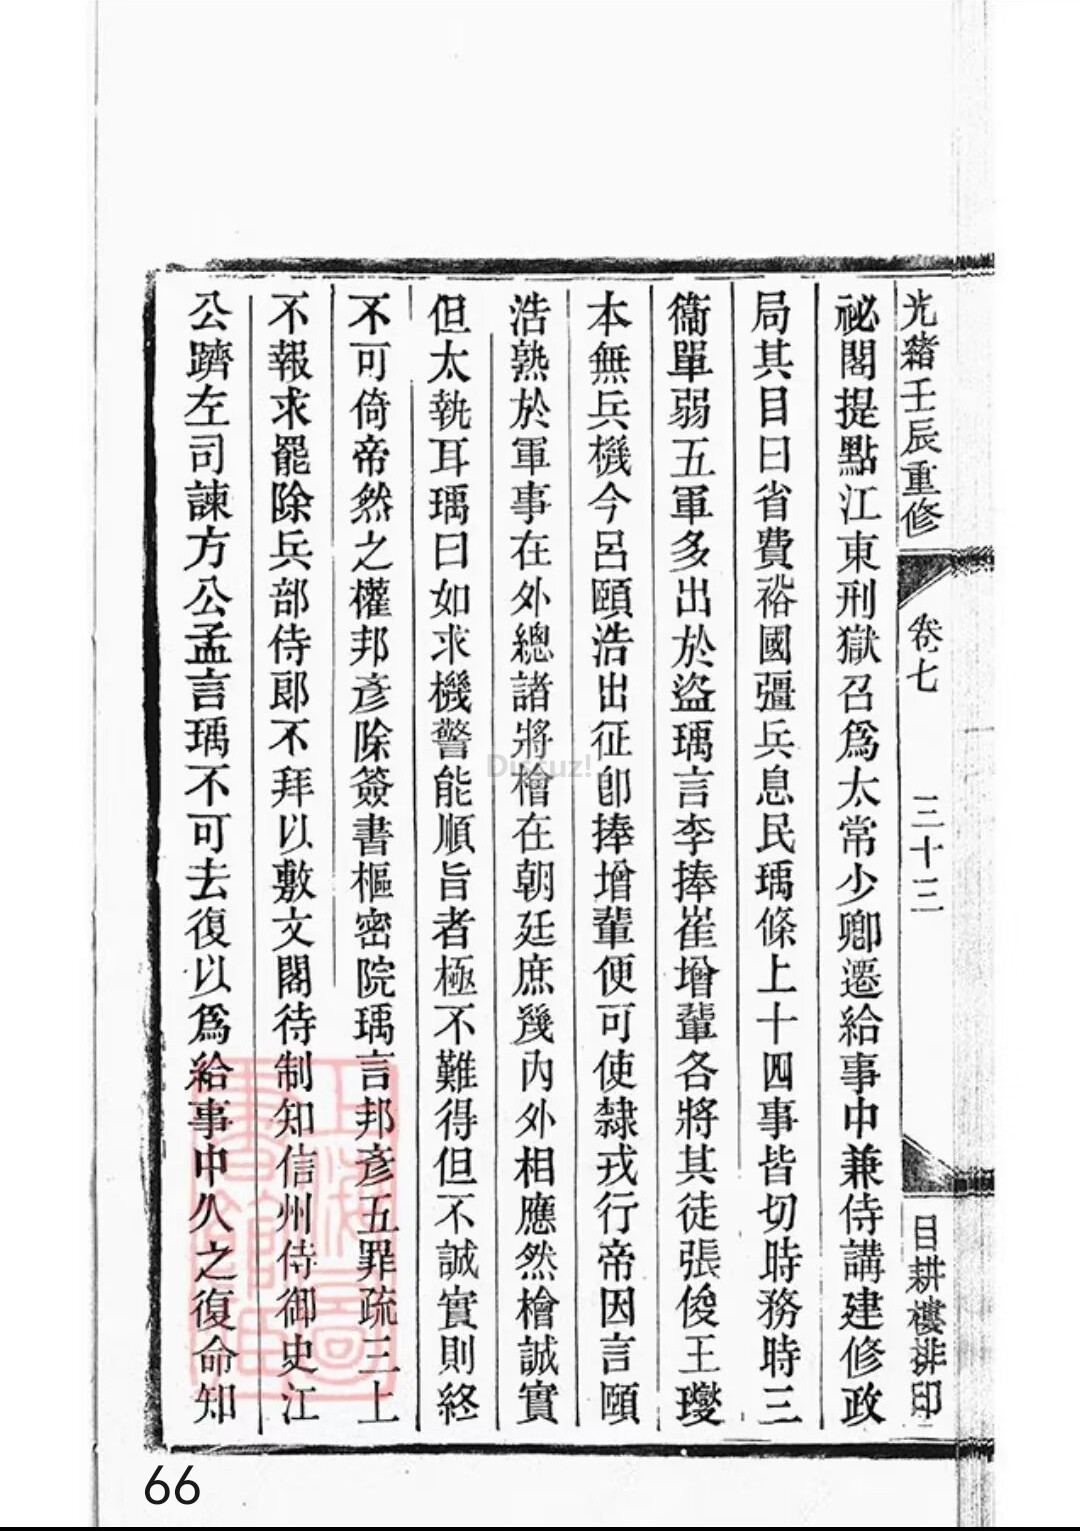 光緒壬辰重修
卷七
三十三
目耕樓排印
祕閣提點江東刑獄召爲太常少卿遷給事中兼侍講建修政
局其目曰省費裕國彊兵息民瑀條上十四事皆切時務時三
衞單弱五軍多出於盜瑀言李捧崔增輩各將其徒張俊王𤫉
本無兵機今呂頤浩出征卽捧增輩便可使隸戎行帝因言頤
浩熟於軍事在外總諸將檜在朝廷庶幾內外相應然檜誠實
但太執耳瑀曰如求機警能順旨者極不難得但不誠實則終
不可倚帝然之權邦彥除簽書樞密院瑀言邦彥五罪疏三上
不報求罷除兵部侍郎不拜以敷文閣待制知信州侍御史江
公躋左司諫方公孟言瑀不可去復以爲給事中久之復命知
上海圖書館
Discuz!
66